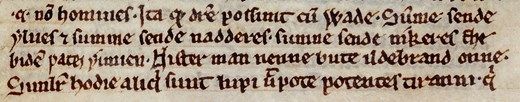 . q̄ nō homines. Ita q̄ dr̄e possunt cū Wade. Sūme sende
ylues ⁊ summe sende nadderes. sumne sende nikeres the
biden pates ƿunien. Nister man nenne bute ildebrand onne.
Simlr̄ hodie aliq̄ sunt lupi ū pote potentes tiranni. q̄